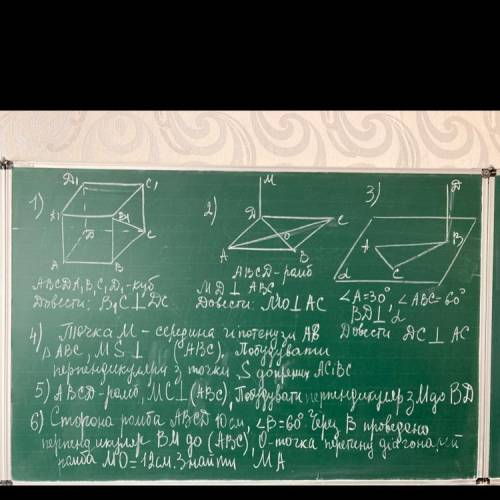 1)
Д₁
C₁
A₁
B₁
Д
C
A
B
ABCDA₁B₁C₁D₁-куб
Довести: B₁C⊥DC
2)
M
Д
C
O
A
B
ABCD-ромб
MD⊥ABC,
Довести: MO⊥AC
3)
Д
A
B
C
α
∠A=30° ∠ABC=60°
BD⊥α
Довести DC⊥AC
4) Точка M – середина гіпотенузи AB
△ABC, MS⊥ (ABC). Побудувати
перпендикуляри з точки S до прямих AC і BC
5) ABCD-ромб, MC⊥(ABC), Побудувати перпендикуляр з M до BD
6) Сторона ромба ABCD 10см, ∠B=60° Через B проведено
перпендикуляр BM до (ABC), O-точка перетину діагоналей
ромба MO=12см. Знайти MA